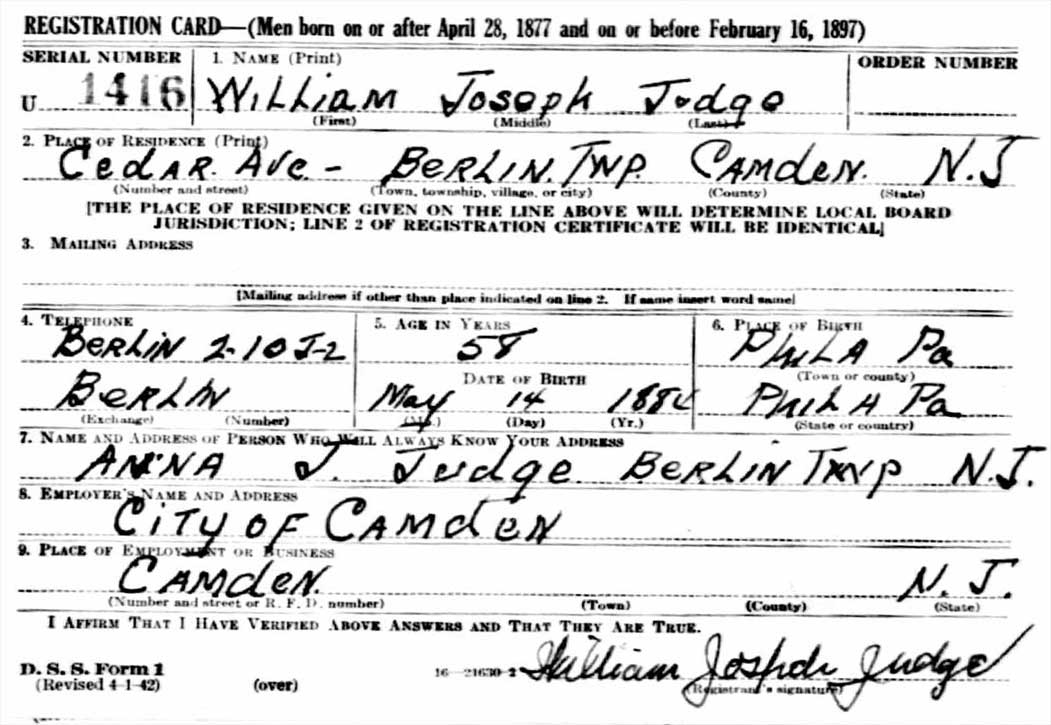 REGISTRATION CARD—(Men born on or after April 28, 1877 and on or before February 16, 1897)
SERIAL NUMBER 1. NAME (Print) ORDER NUMBER
U 1416 William Joseph Judge
(First) (Middle) (Last)
2. PLACE OF RESIDENCE (Print)
Cedar Ave. - Berlin. Twp. Camden. N.J
(Number and street) (Town, township, village, or city) (County) (State)
[THE PLACE OF RESIDENCE GIVEN ON THE LINE ABOVE WILL DETERMINE LOCAL BOARD
JURISDICTION; LINE 2 OF REGISTRATION CERTIFICATE WILL BE IDENTICAL]
3. MAILING ADDRESS
[Mailing address if other than place indicated on line 2. If same insert word same]
4. TELEPHONE 5. AGE IN YEARS 6. PLACE OF BIRTH
Berlin 2-10J-2 58 Phila Pa
(Town or county)
DATE OF BIRTH
Berlin May 14 1884 Phila Pa
(Exchange) (Number) (Mo.) (Day) (Yr.) (State or country)
7. NAME AND ADDRESS OF PERSON WHO WILL ALWAYS KNOW YOUR ADDRESS
Anna J. Judge Berlin Twp N.J.
8. EMPLOYER'S NAME AND ADDRESS
City of Camden
9. PLACE OF EMPLOYMENT OR BUSINESS
Camden. N.J.
(Number and street or R. F. D. number) (Town) (County) (State)
I AFFIRM THAT I HAVE VERIFIED ABOVE ANSWERS AND THAT THEY ARE TRUE.
D. S. S. Form 1 16—21630-2 William Joseph Judge
(Revised 4-1-42) (over) (Registrant's signature)